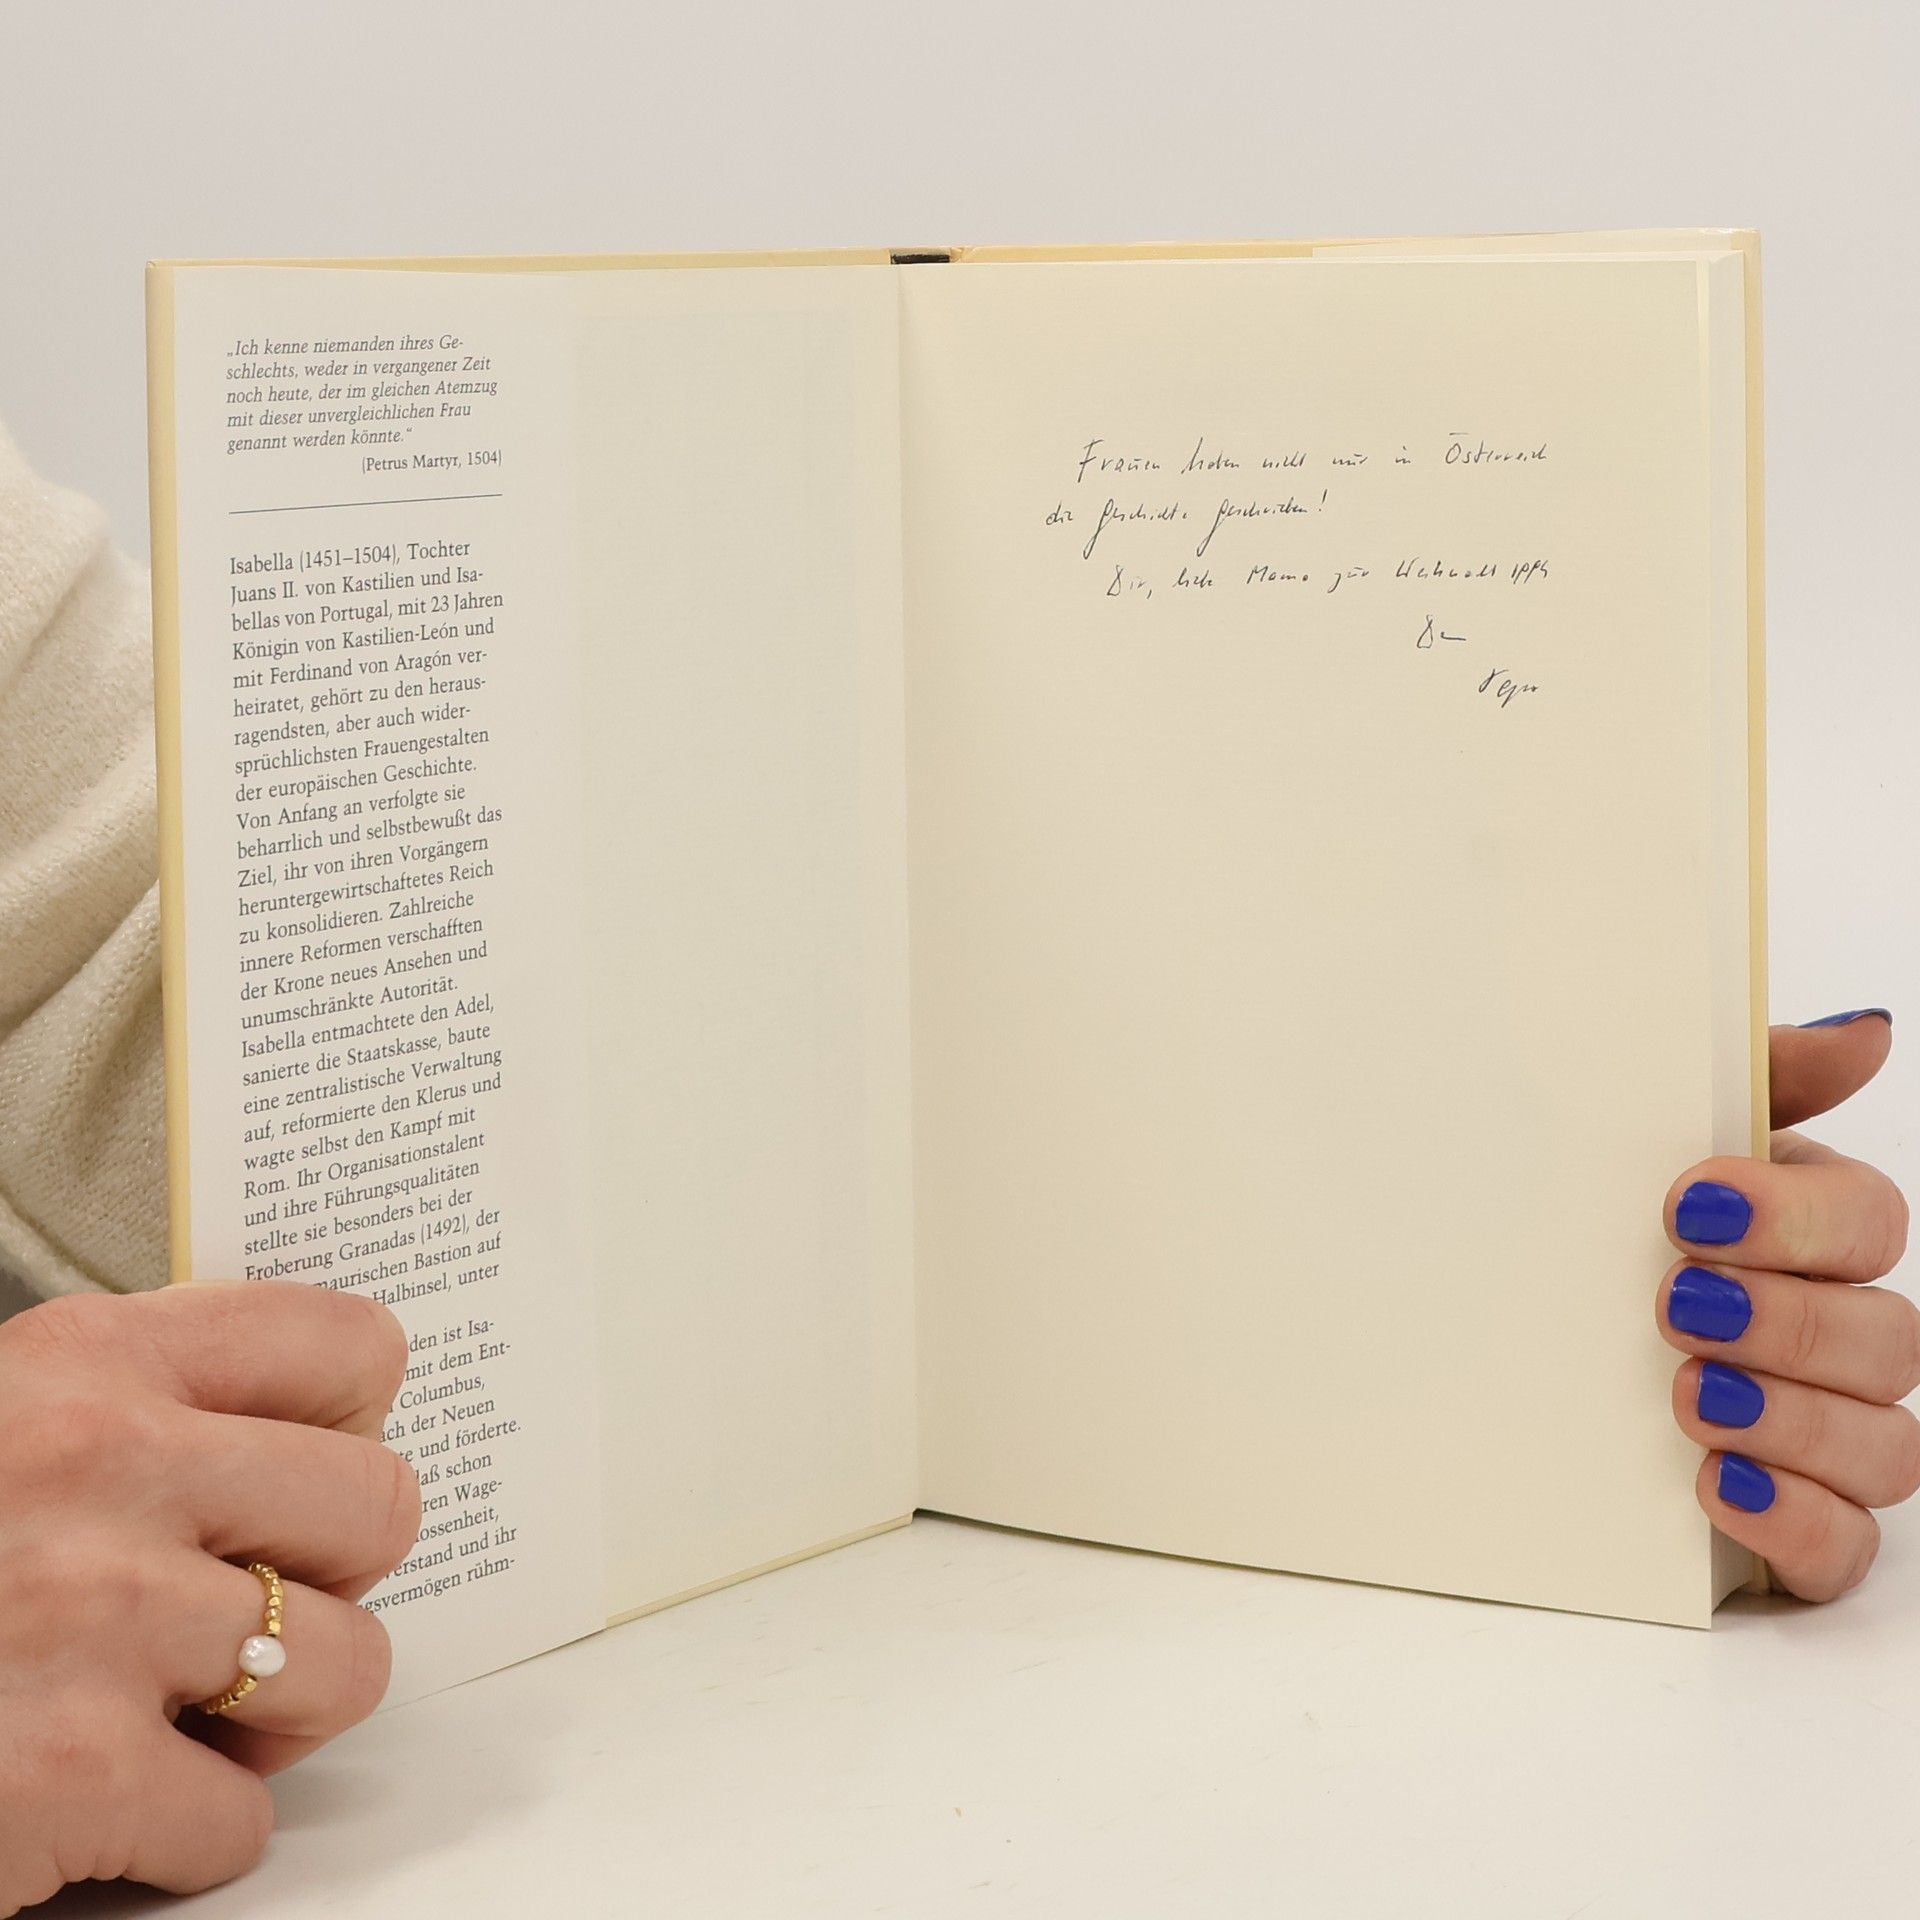 „Ich kenne niemanden ihres Ge-
schlechts, weder in vergangener Zeit
noch heute, der im gleichen Atemzug
mit dieser unvergleichlichen Frau
genannt werden könnte.“
(Petrus Martyr, 1504)
Isabella (1451–1504), Tochter
Juans II. von Kastilien und Isa-
bellas von Portugal, mit 23 Jahren
Königin von Kastilien-León und
mit Ferdinand von Aragón ver-
heiratet, gehört zu den heraus-
ragendsten, aber auch wider-
sprüchlichsten Frauengestalten
der europäischen Geschichte.
Von Anfang an verfolgte sie
beharrlich und selbstbewußt das
Ziel, ihr von ihren Vorgängern
heruntergewirtschaftetes Reich
zu konsolidieren. Zahlreiche
innere Reformen verschafften
der Krone neues Ansehen und
unumschränkte Autorität.
Isabella entmachtete den Adel,
sanierte die Staatskasse, baute
eine zentralistische Verwaltung
auf, reformierte den Klerus und
wagte selbst den Kampf mit
Rom. Ihr Organisationstalent
und ihre Führungsqualitäten
stellte sie besonders bei der
Eroberung Granadas (1492), der
maurischen Bastion auf
Halbinsel, unter
den ist Isa-
mit dem Ent-
Columbus,
der Neuen
und förderte.
schon
Wage-
und ihr
rühm-
Frauen haben nicht nur in Österreich
die Geschichte geschrieben!
Dir, liebe Mama zur Weihnacht 1994